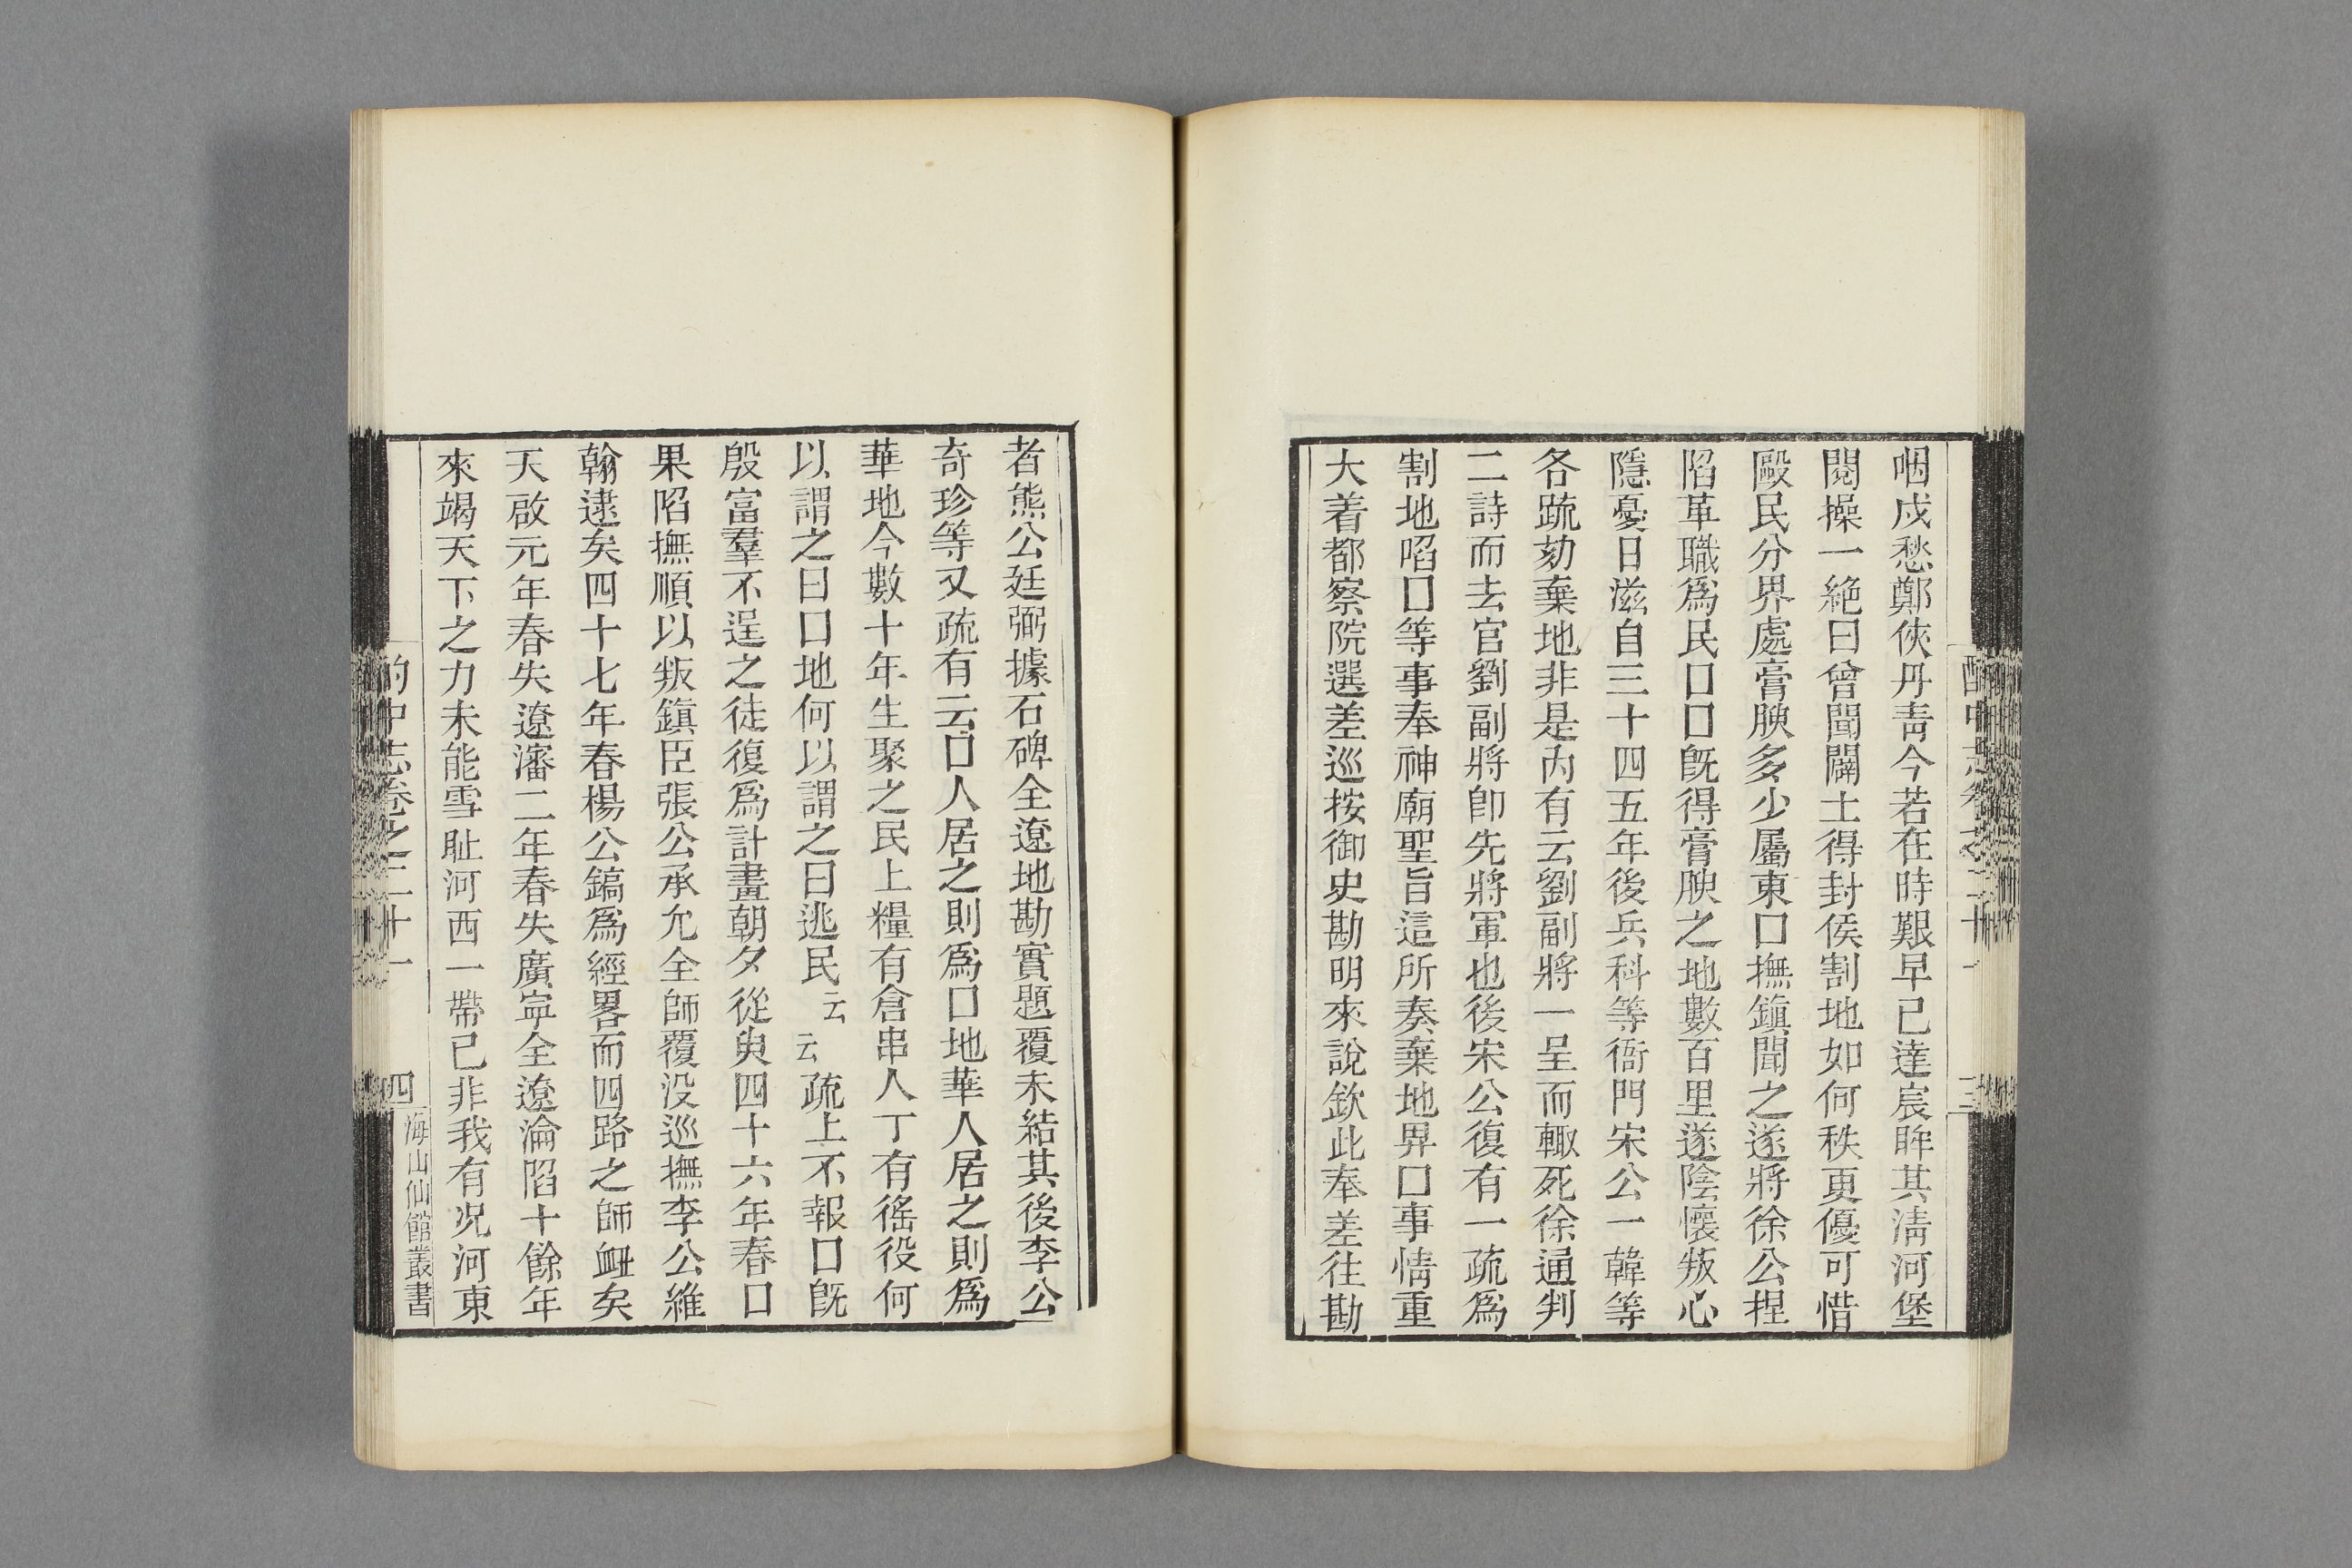 咽戍愁鄭俠丹靑今若在時艱早已達宸眸其清河堡
閱操一絶曰曾聞闢土得封侯割地如何秩更優可惜
毆民分界處膏腴多少屬東口撫鎭聞之遂將徐公捏
陷革職爲民口口旣得膏腴之地數百里遂陰懷叛心
隱憂日滋自三十四五年後兵科等衙門宋公一韓等
各疏劾棄地非是內有云劉副將一呈而輙死徐通判
二詩而去官劉副將卽先將軍也後宋公復有一疏爲
割地啗口等事奉神廟聖旨這所奏棄地畀口事情重
大着都察院選差巡按御史勘明來說欽此奉差往勘
者熊公廷弼據石碑全遼地勘實題覆未結其後李公
奇珍等又疏有云口人居之則爲口地華人居之則爲
華地今數十年生聚之民上糧有倉串人丁有徭役何
以謂之曰口地何以謂之曰逃民云云疏上不報口旣
殷富羣不逞之徒復爲計畫朝夕從臾四十六年春口
果陷撫順以叛鎭臣張公承允全師覆没巡撫李公維
翰逮矣四十七年春楊公鎬爲經畧而四路之師衄矣
天啟元年春失遼瀋二年春失廣寧全遼淪陷十餘年
來竭天下之力未能雪耻河西一帶已非我有况河東
酌中志卷之二十一
四
海山仙館叢書